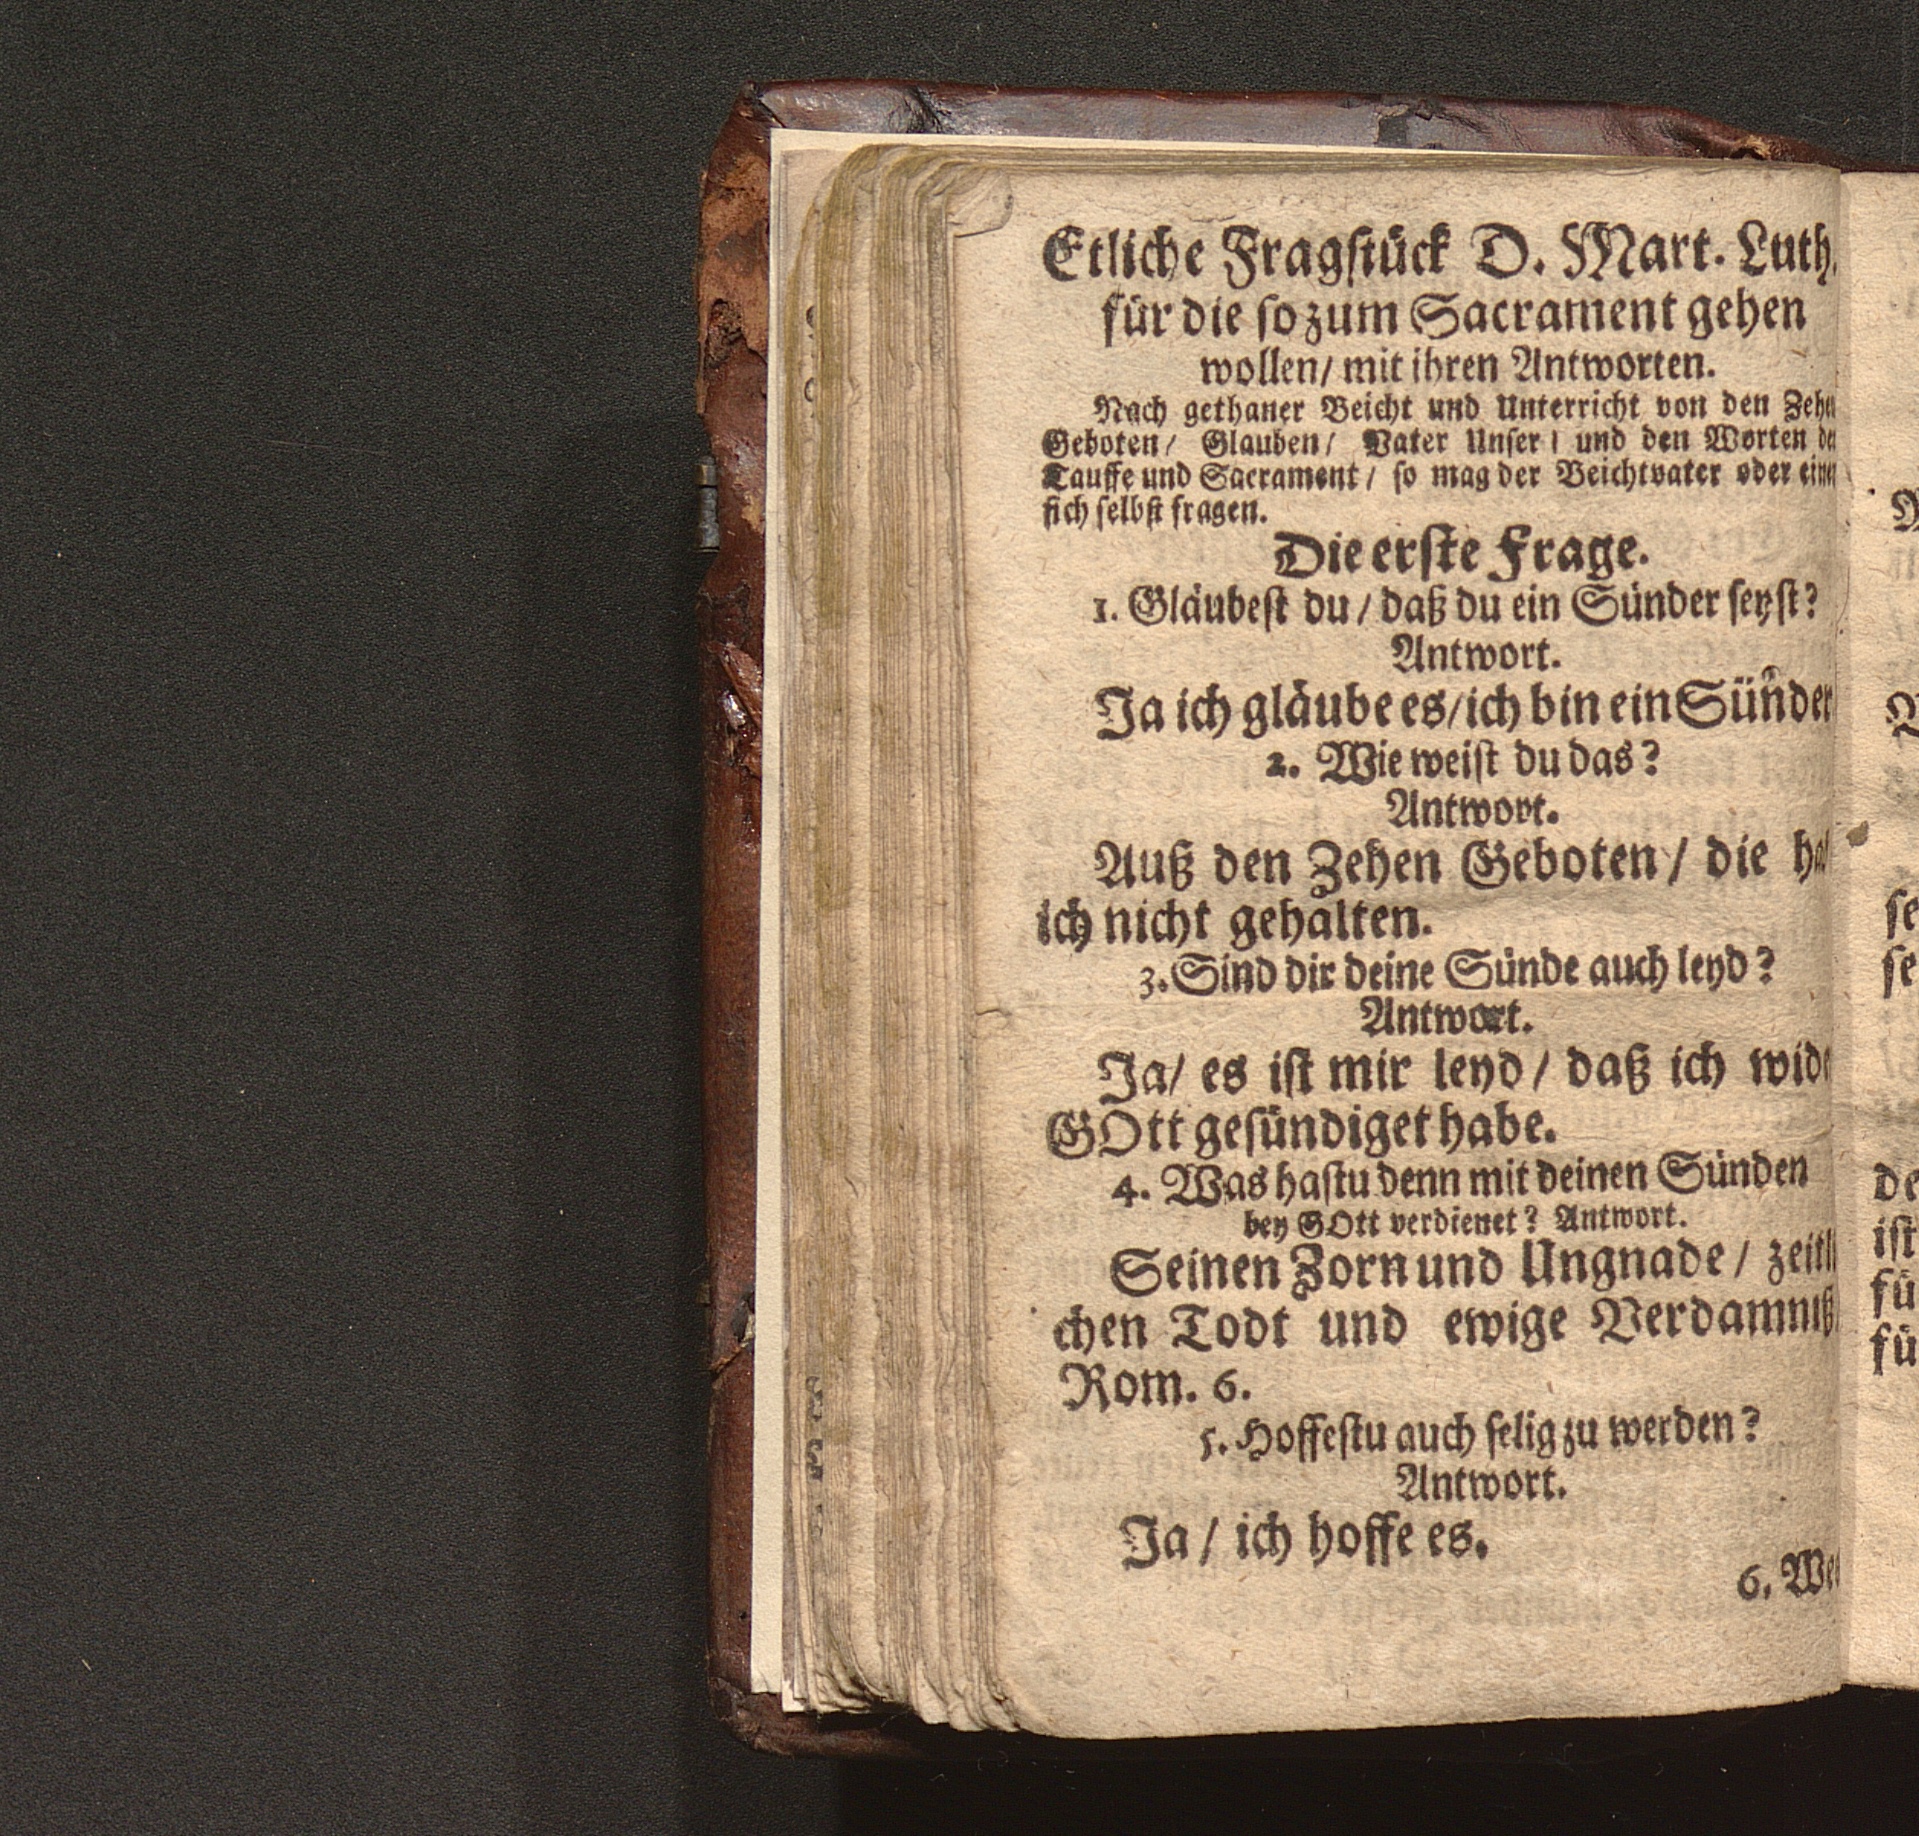 Etliche Fragstück D. Mart. Luth.
für die so zum Sacrament gehen
wollen/ mit ihren Antworten.
Nach gethaner Beicht und Unterricht von den Zehen
Geboten/ Glauben/ Vater Unser/ und den Worten der
Tauffe und Sacrament/ so mag der Beichtvater oder einer
sich selbst fragen.
Die erste Frage.
1. Gläubest du/ daß du ein Sünder seyst?
Antwort.
Ja ich gläube es/ ich bin ein Sünder
2. Wie weist du das?
Antwort.
Auß den Zehen Geboten/ die
ich nicht gehalten.
3. Sind dir deine Sünde auch leyd?
Antwort.
Ja/ es ist mir leyd/ daß ich wide
GOtt gesündiget habe.
4. Was hastu denn mit deinen Sünden
bey GOtt verdienet? Antwort.
Seinen Zorn und Ungnade/ zeitli
chen Todt und ewige Verdamniß
Rom. 6.
5. Hoffestu auch selig zu werden?
Antwort.
Ja/ ich hoffe es.
6. We
se
se
de
ist
fü
fü